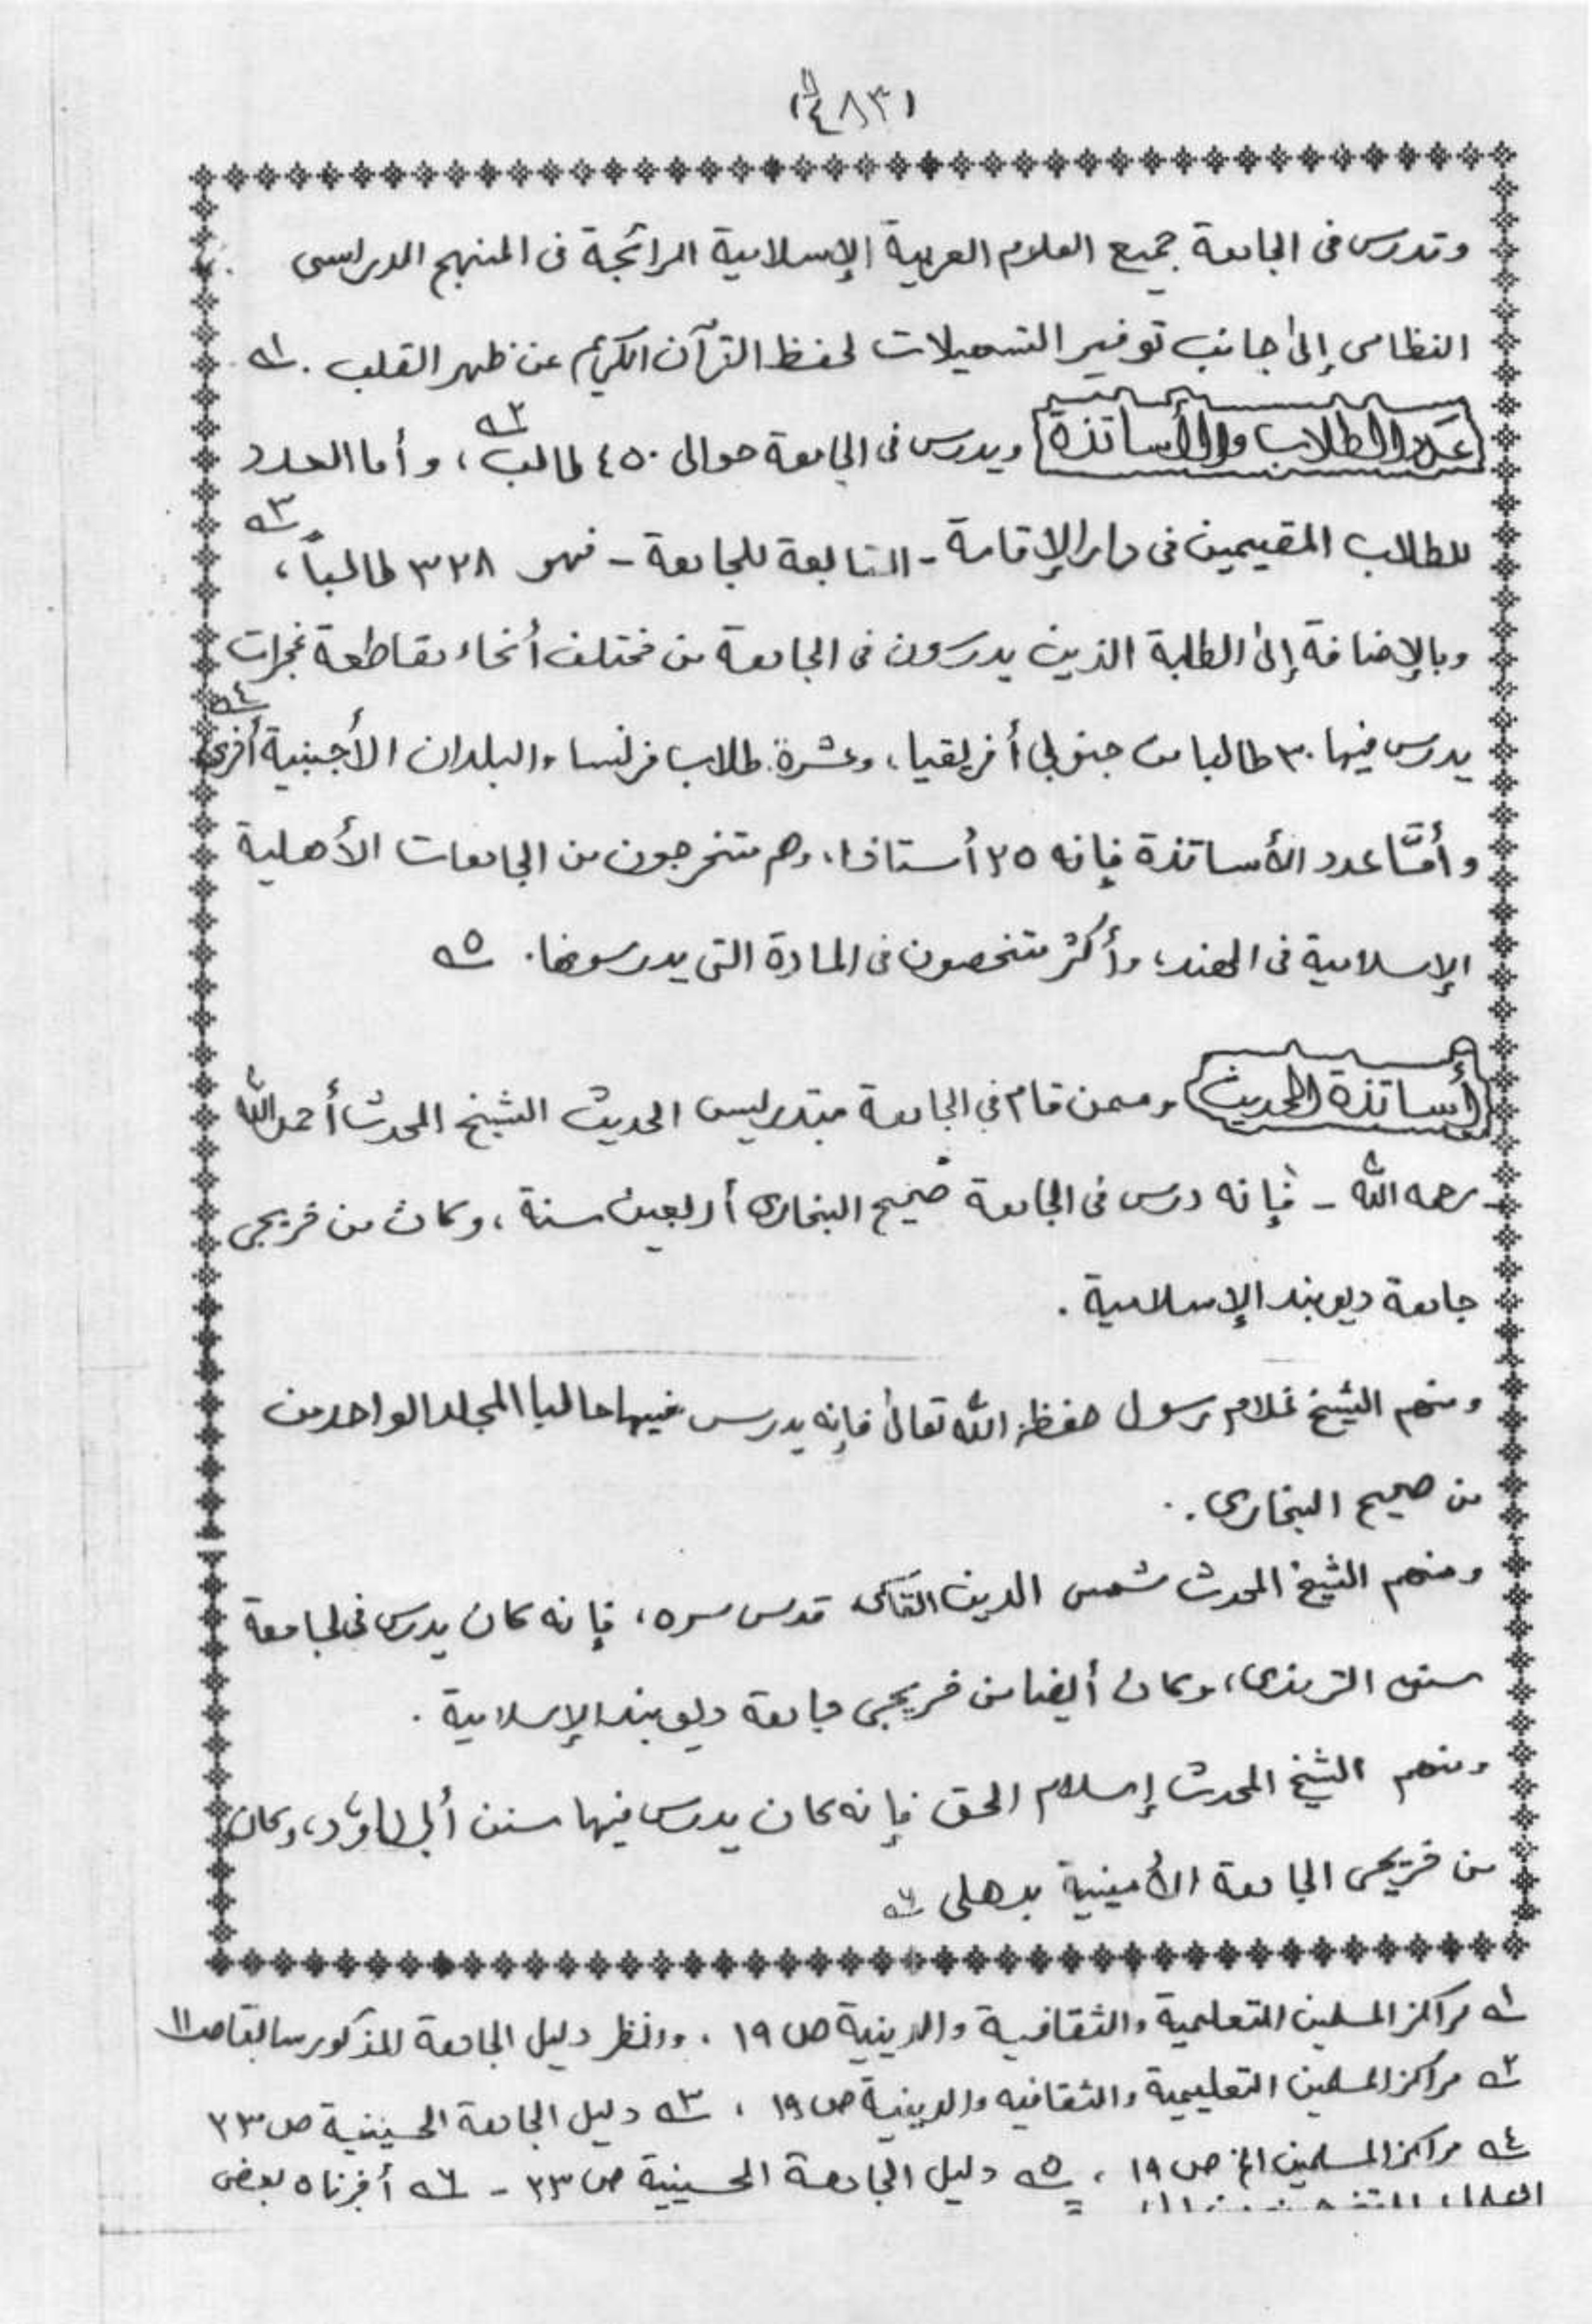 (٤٨٣)
وتدرس فى الجامعة جميع العلوم العربية الإسلامية الرائجة فى المنهج الدراسى
النظامى إلى جانب توفير التسهيلات لحفظ القرآن الكريم عن ظهر القلب . ١
عدد الطلاب والأساتذة ويدرس فى الجامعة حوالى ٤٥٠ طالب ٢، وأما العدد
للطلاب المقيمين فى دار الإقامة - التابعة للجامعة - فهو ٣٢٨ طالباً، ٣
وبالإضافة إلى الطلبة الذين يدرسون فى الجامعة من مختلف أنحاء مقاطعة غجرات
يدرس فيها ٣٠ طالبا من جنوبى أفريقيا، وعشرة طلاب فرنسا والبلدان الأجنبية أخرى ٤
وأمّا عدد الأساتذة فإنه ٢٥ أستاذا، وهم متخرجون من الجامعات الأهلية
الإسلامية فى الهند، وأكثر متخصصون فى المادة التى يدرسونها. ٥
أساتذة الحديث وممن قام فى الجامعة بتدريس الحديث الشيخ المحدث أحمد الله
رحمه الله - فإنه درس فى الجامعة صحيح البخارى أربعين سنة، وكان من خريجى
جامعة ديوبند الإسلامية .
ومنهم الشيخ غلام رسول حفظه الله تعالى فإنه يدرس فيها حاليا المجلد الواحد من
من صحيح البخارى .
ومنهم الشيخ المحدث شمس الدين قدس سره، فإنه كان يدرس فى الجامعة
سنن الترمذى، وكان أيضا من خريجى جامعة ديوبند الإسلامية .
ومنهم الشيخ المحدث إسلام الحق فإنه كان يدرس فيها سنن أبى داؤد، وكان
من خريجى الجامعة الأمينية بدهلى ٦
١ مراكز المسلمين التعليمية والثقافية والدينية ص ١٩ . وانظر دليل الجامعة المذكور سابقا ص ١١
٢ مراكز المسلمين التعليمية والثقافيه والدينية ص ١٩ ، ٣ دليل الجامعة الحسينية ص ٢٣
٤ مراكز المسلمين الخ ص ١٩ ، ٥ دليل الجامعة الحسينية ص ٢٣ - ٦ أخبرناه بعض